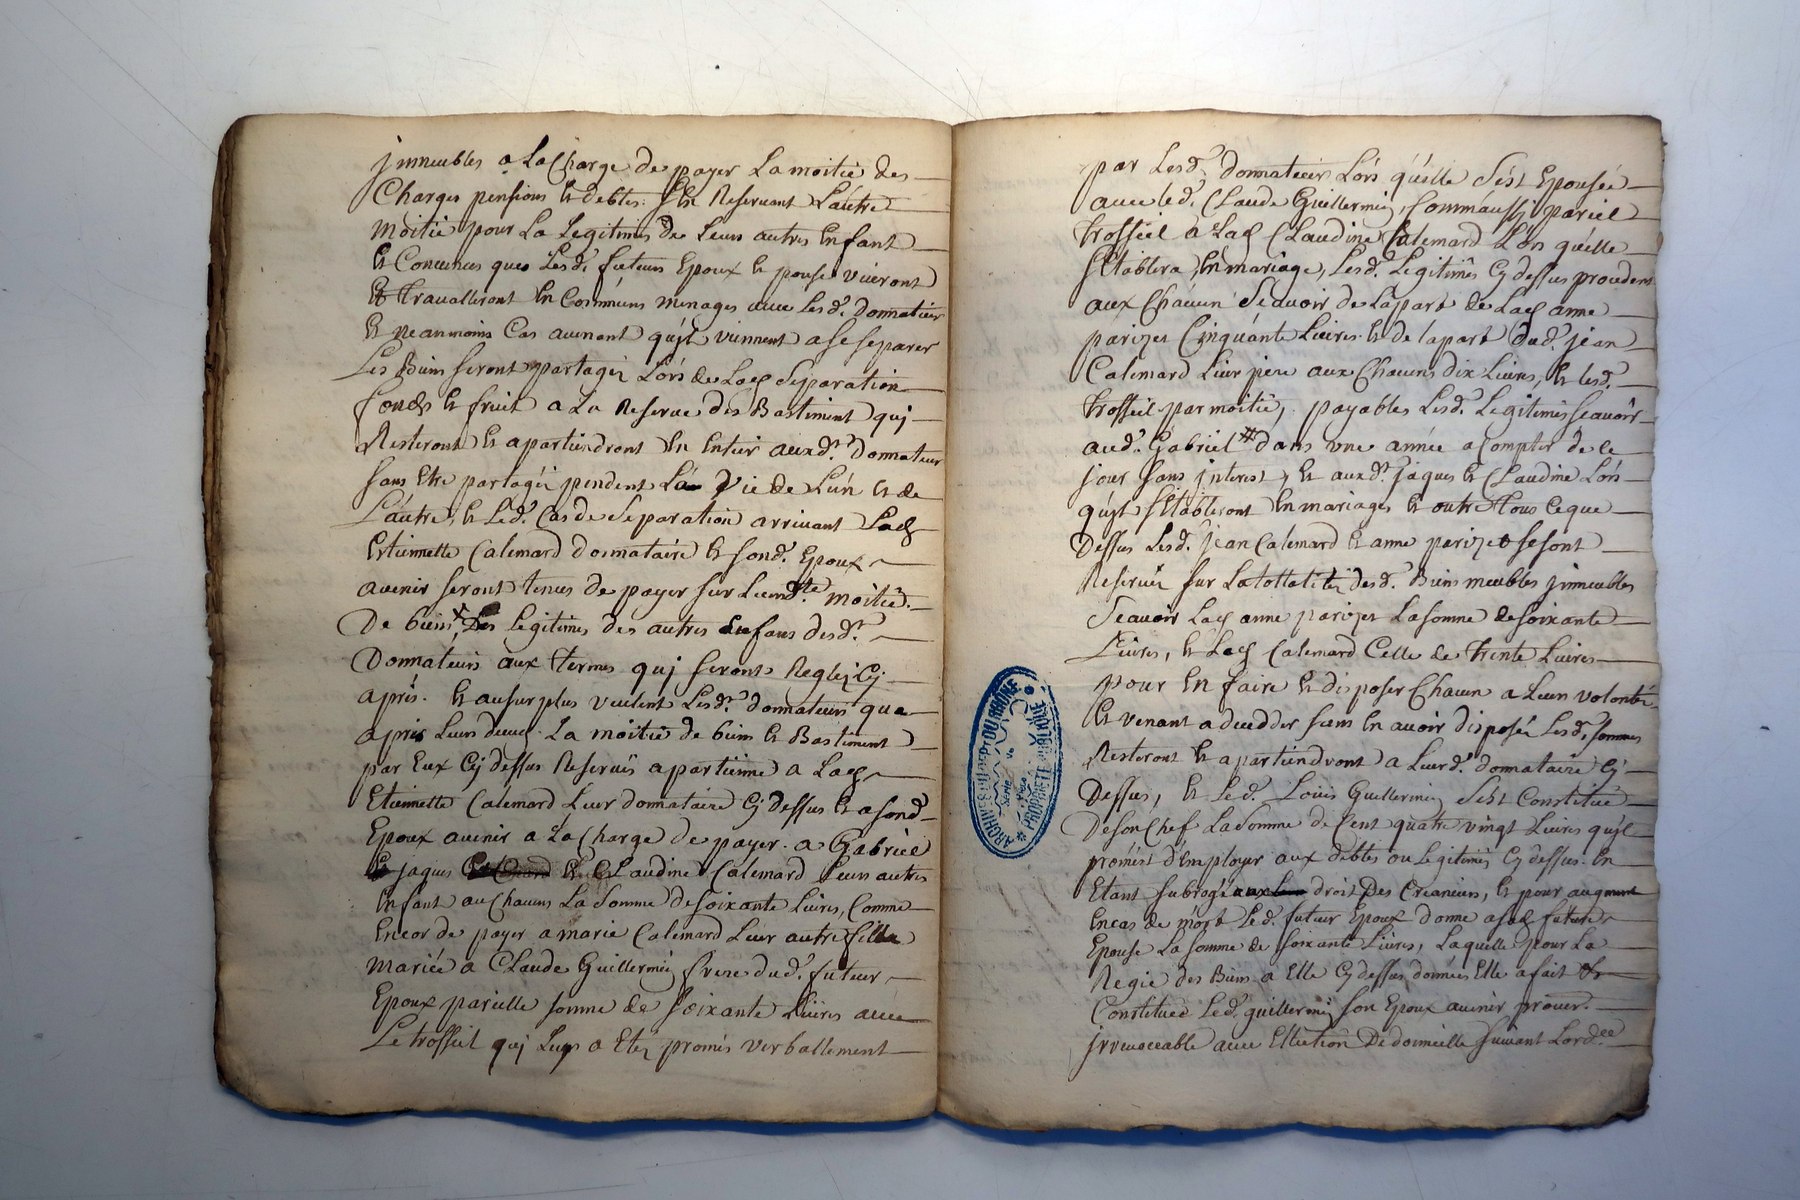 jmmeubles a La Charge de payer La moitié des
Charges pensions Et debtes. Et En Reservant L'autre
moitié pour La Legitimes de Leurs autres Enfant
Et Convenues que Lesd. futeurs Epoux Et pouse viveront
Et travailleront En Commeuns menages avec Lesd. Donnatieurs
Et neanmoins Cas avenant qu'jls viennent a se separer
Les Biens seront partagéz Lórs de Lad Separation
fonds Et fruit a La Reserve des Bastiment quj
Resteront Et apartiendront En Entier auxd. Donnateur
sans Etre partagéz pendent La Vie de Lún et de
L'autre, Et Led. Cas de Separation arrivant Lad
Estiennette Calemard donnataire Et sond. Epoux
avenir seront tenus de payer sur Leurd.te moitié
De biens Les Legitimes des autres Enfans desd.
Donnateurs aux termes quj seront Regléz Cy
aprés. Et au surplus veulent Lesd. donnateurs que
aprés Leurs deced La moitié de biens Et Bastiment
par Eux Cy dessus Reservés apartienne a Lad
Etiennette Calemard Leur donnataire Cy dessus Et a sond
Epoux avenir a La Charge de payer a Gabriel
jaques Et Claudine Calemard Leurs autres
Enfant au Chacuns La Somme de soixante Livres, Comme
Encor de payer a marie Calemard Leur autre fille
mariée a Claude Guillermin frere dud. futeur
Epoux pareille somme de soixante Livres avec
Le trossiel quj Leur a Etez promis verballement
par Lesd. donnateurs Lórs qu'elle S'est Epousée
avec led. Claude Guillermin, Comm'aussj pareil
trossiel a Lad Claudine Calemard Lórs qu'elle
s'Etablira En mariage, Lesd. Legitimés Cy dessus provdens
aux Chacun Scavoir de La part de Lad anne
parizet Cinquante Livres. Et de la part dud. jean
Calemard Leur pere aux Chacuns dix Livres, Et lesd.
trossiel par moitié, payables Lesd. Legitimés scavoir
aud. Gabriel # dans une année a Compter de ce
jour sans jnterest, Et auxd. jaques Et Claudine Lórs
qu'jls s'Etabliront En mariages Et outre tous Ce que
Dessus Lesd. jean Calemard Et anne parizet se sont
Reservéz sur La tottalitéz desd. Biens meubles jmmeubles
Scavoir Lad anne parizet La somme de soixante
Livres, Et Led Calemard Celle de trente Livres
pour En faire Et disposer Chacun a Leurs volonté
Et venant a decedder sans En avoir disposé Lesd. sommes
Resteront Et apartiendront a Leurd. donnataire Cy
Dessus, Et Led. Louis Guillermin S'est Constitué
De son Chef La somme de Cent quatre vingt Livres qu'jl
promést d'Employer aux debtes ou Legitimés Cy dessus. En
Etant subrogé droit Des Creanciers, Et pour augment
En cas de mort Led. futeur Epoux donne a sad future
Epouse La somme de soixante Livres, Laquelle pour La
Regie des Biens a Elle Cy dessus donnees Elle a fait Et
Constitué Led. guillermin son Epoux avenir procur.
jrrevoccable avec Ellection De domicille suivant Lord.ce
ARCHIVES DÉP. DU RHÔNE